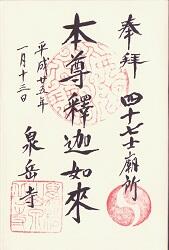 奉拝
四十七士廟所
本尊釋迦如來
平成廿五年
一月十三日
泉岳寺